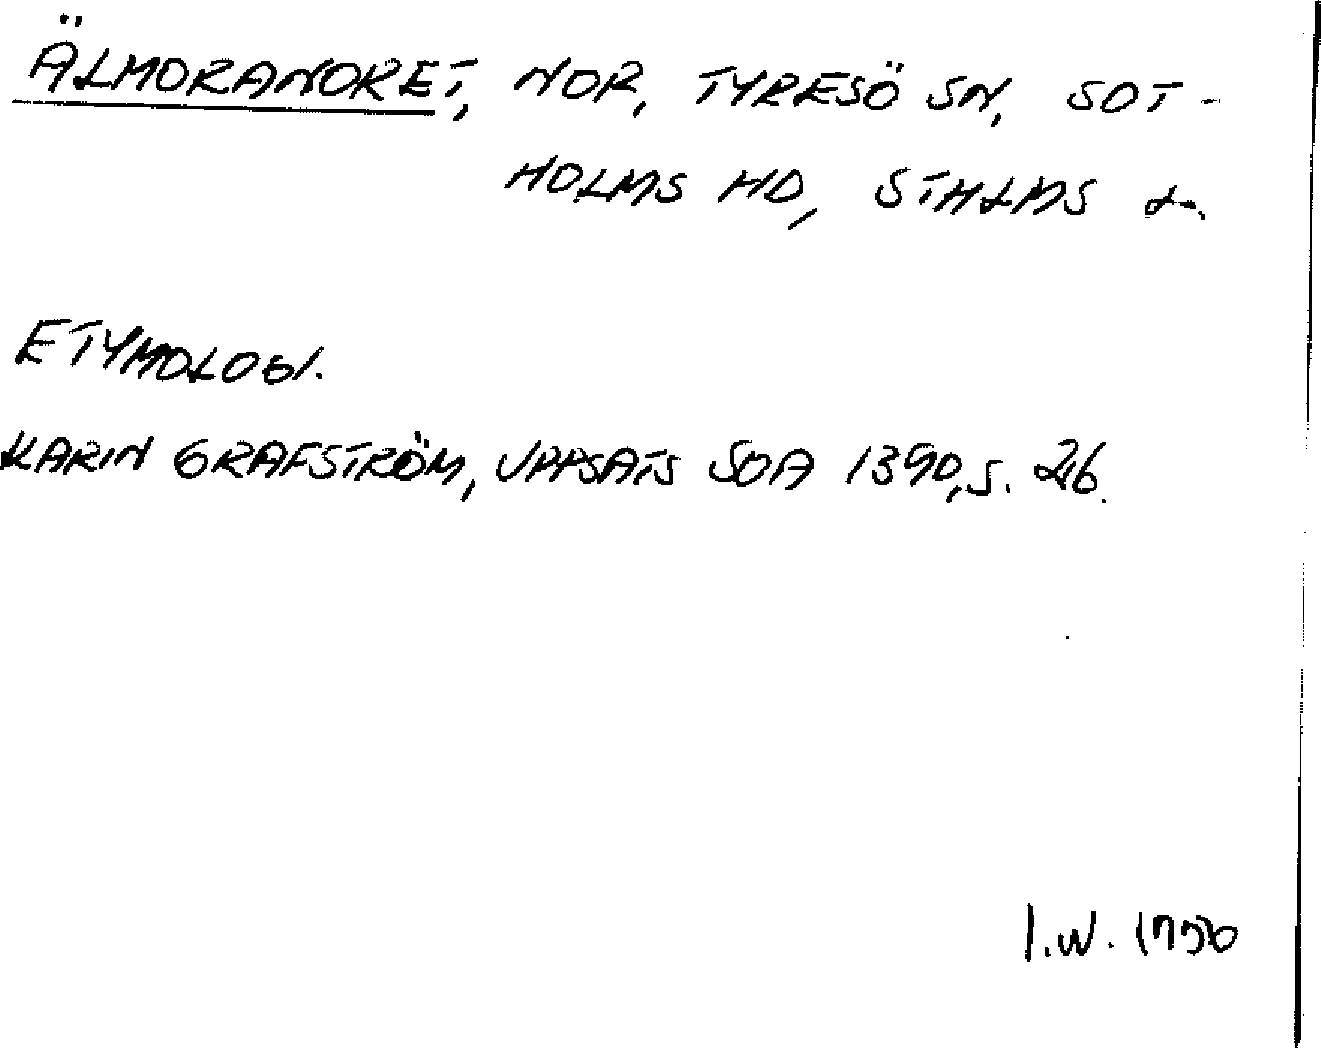 ÄLMORANORET, NOR, TYRESÖ SN, SOT-
HOLMS HD, STHLMS L.
ETYMOLOGI.
KARIN GRAFSTRÖM, UPPSATS SOA 1390, S. 26.
I.W.